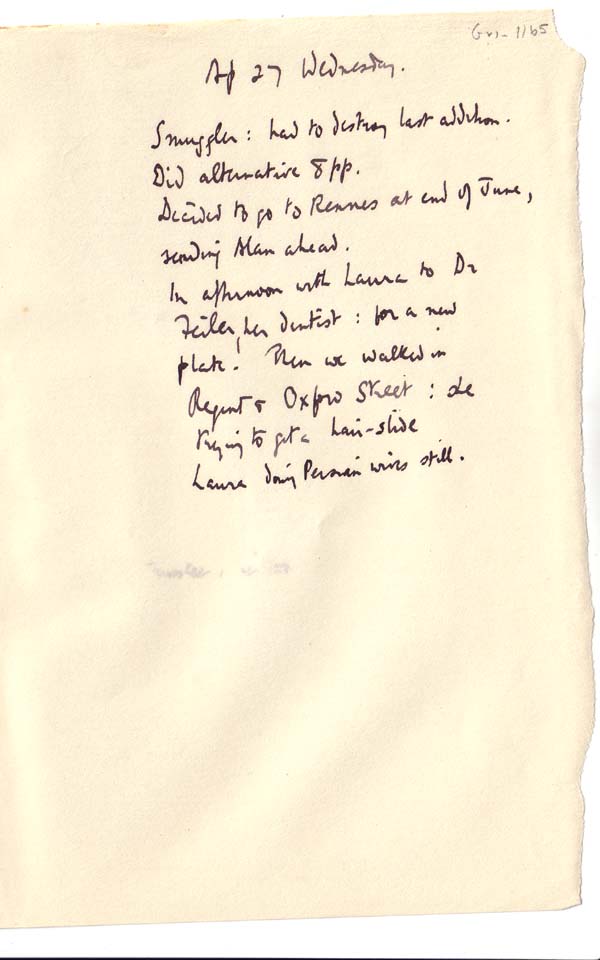 Gri- 1165
Ap 27 Wednesday.
Smuggler: had to destroy last addition.
Did alternative 8 pp.
Decided to go to Rennes at end of June,
sending Alan ahead.
In afternoon with Laura to Dr
Feiler, her dentist: for a new
plate! Then we walked in
Regent & Oxford Street: she
trying to get a hair-slide
Laura doing Persian wives still.